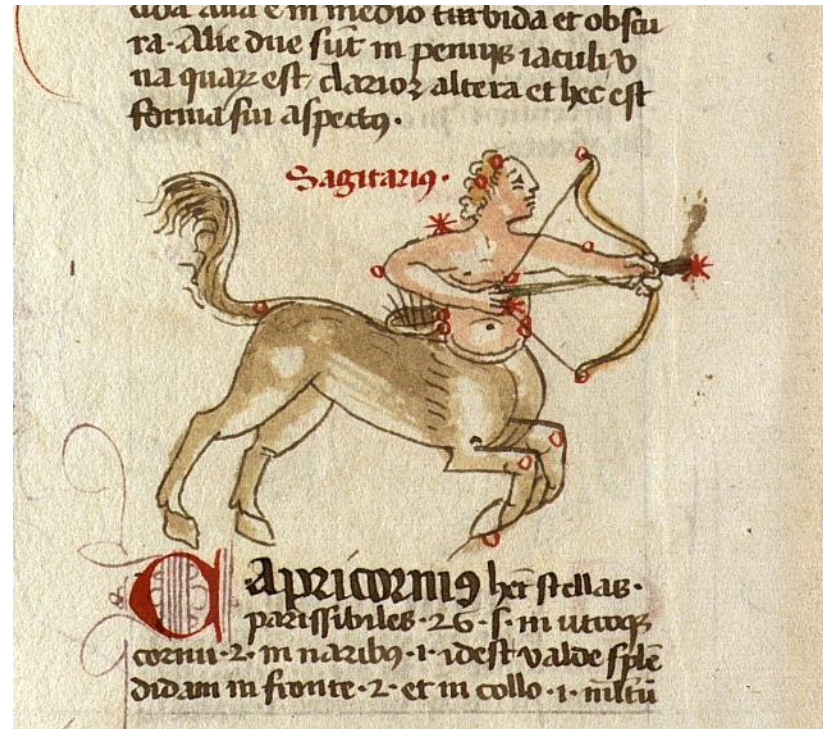 alia e in medio turbida et obscu
ra. Alie due sūt in pennis iaculi v
na quaꝝ est clarior altera et hec est
forma sui aspectꝯ.
Sagitariꝯ.
Capricornıꝯ het stellas.
parissibiles. 26. s. in utroqꝫ
cornu. 2. in naribꝯ. 1. idest valde splē
didam in fronte. 2. et in collo. 1.